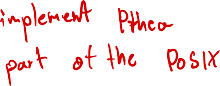 implement Pthea
part of the POSIX